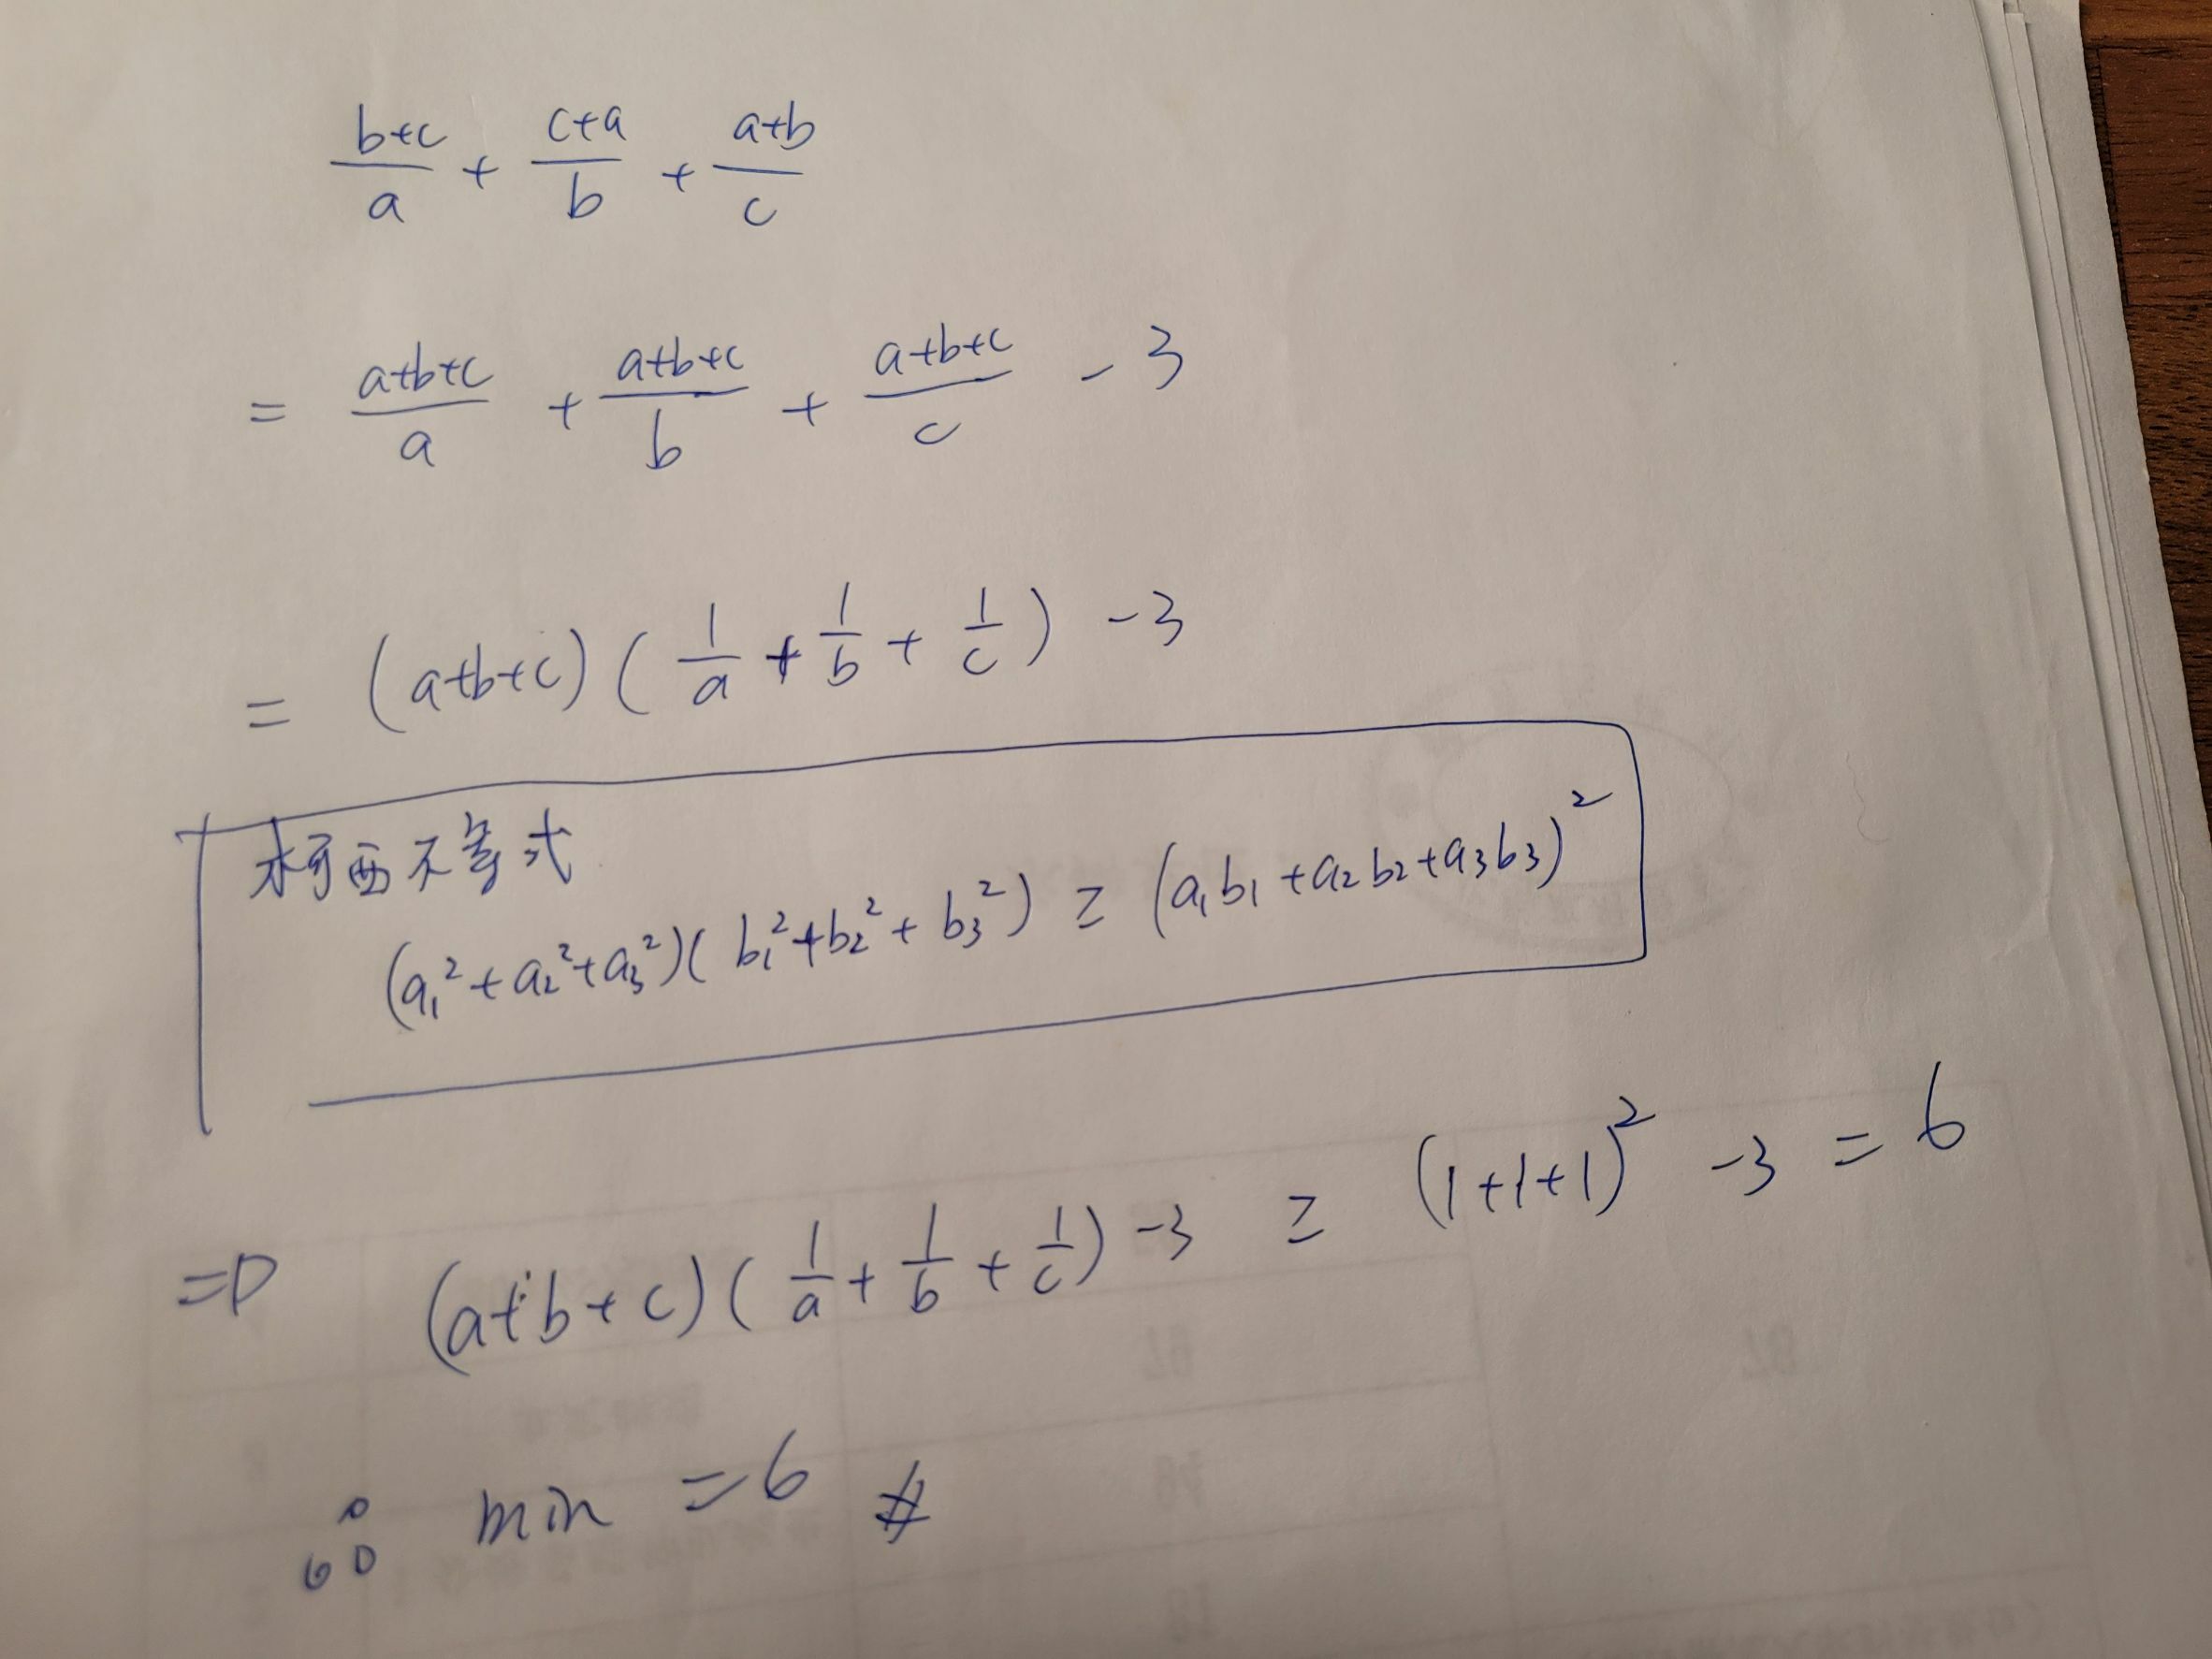 (b+c)/a + (c+a)/b + (a+b)/c
= (a+b+c)/a + (a+b+c)/b + (a+b+c)/c - 3
= (a+b+c)(1/a + 1/b + 1/c) - 3
柯西不等式
(a₁²+a₂²+a₃²)(b₁²+b₂²+b₃²) ≥ (a₁b₁+a₂b₂+a₃b₃)²
⇒ (a+b+c)(1/a + 1/b + 1/c) - 3 ≥ (1+1+1)² - 3 = 6
∴ min = 6 #